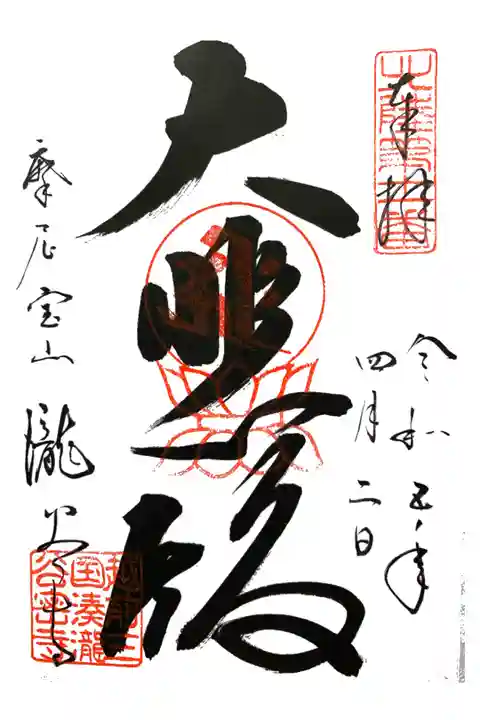 奉拝
令和五年
四月二日
大悲殿
摩尼宝山 瀧谷寺
越前三
国湊瀧